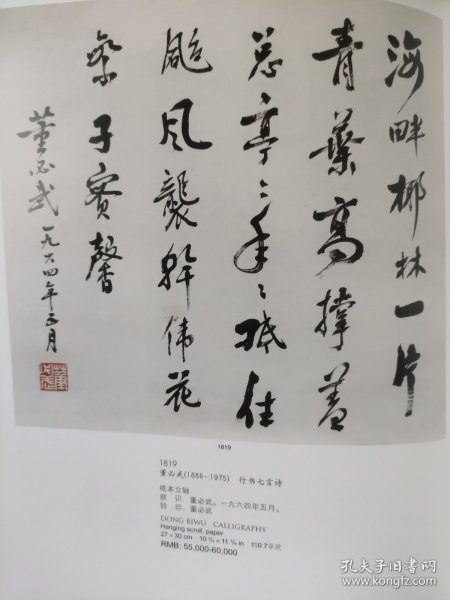 海畔椰林一片
青葉高撑盖
总亭〻年〻抵住
飓风襲幹伟花
繁子實馨
董必武 一九六四年五月
董必武
1819
1819
董必武(1886—1975) 行书七言诗
纸本立轴
款 识：董必武。一九六四年五月。
钤 印：董必武
DONG BIWU CALLIGRAPHY
Hanging scroll, paper
27 × 30 cm 10 ⅝ × 11 ¾ in 约0.7平尺
RMB: 55,000-60,000
孔夫子旧书网